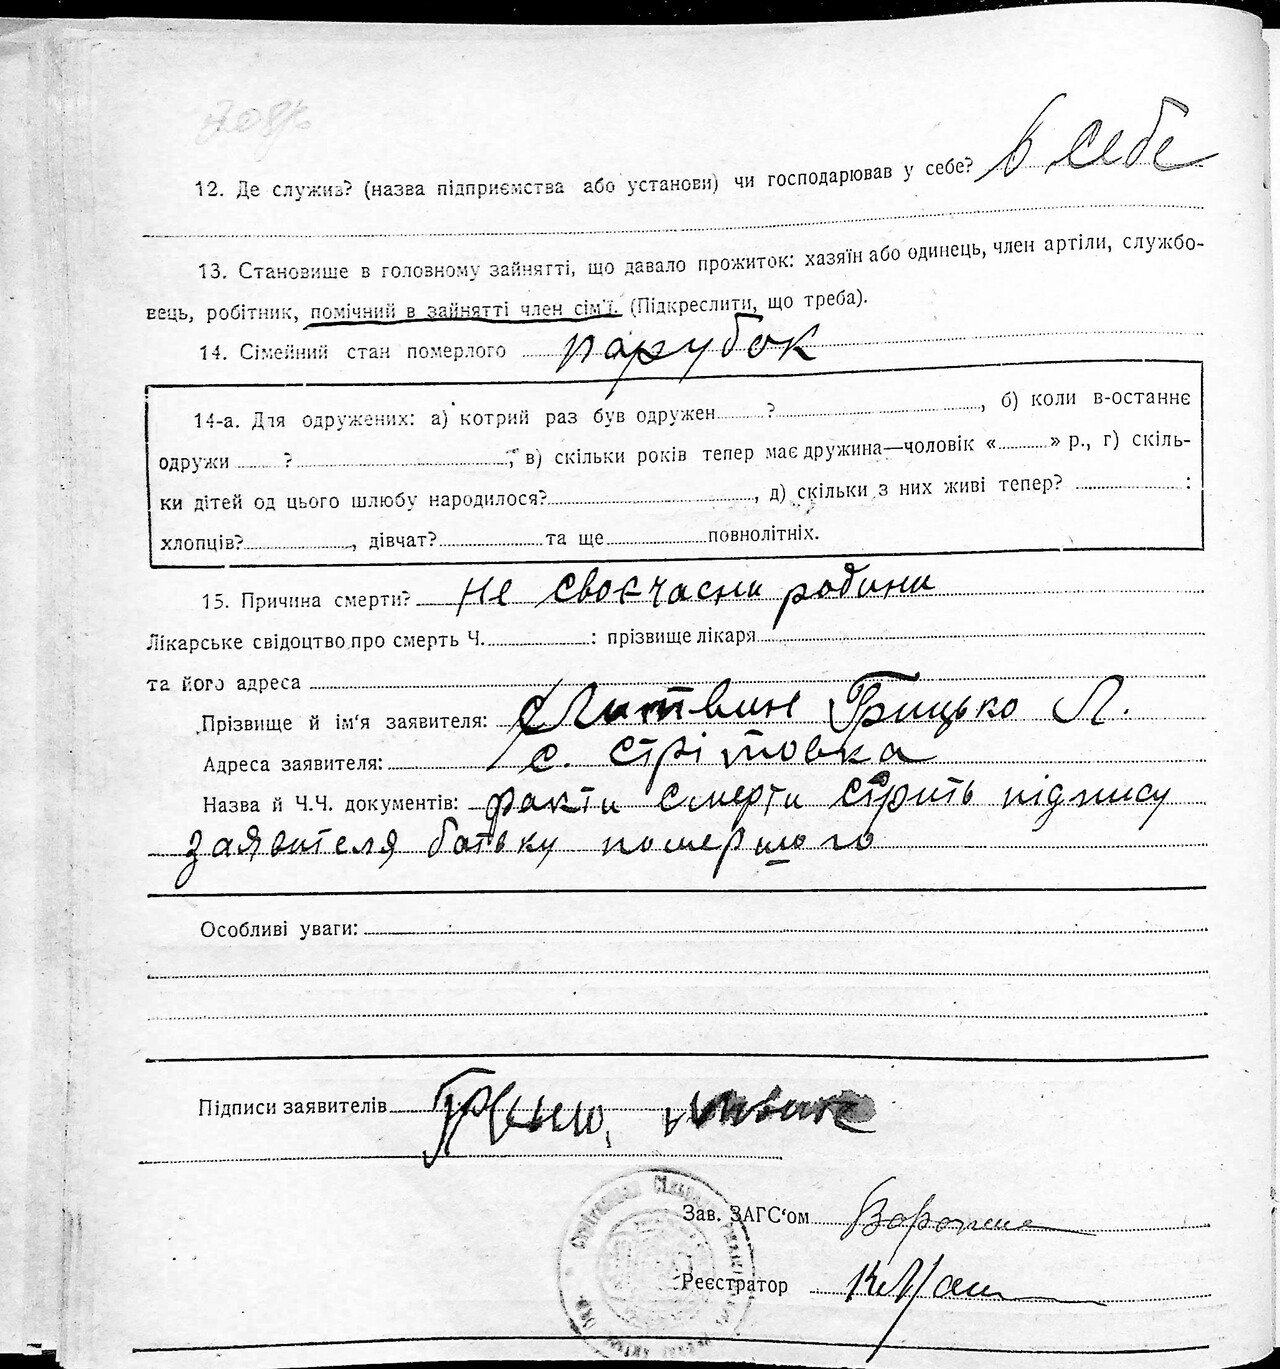 12. Де служив? (назва підприємства або установи) чи господарював у себе? в себе
13. Становище в головному зайнятті, що давало прожиток: хазяїн або одинець, член артіли, службо-
вець, робітник, помічний в зайнятті член сім'ї. (Підкреслити, що треба).
14. Сімейний стан померлого парубок
14-а. Для одружених: а) котрий раз був одружен ?, б) коли в-останнє
одружи ?, в) скільки років тепер має дружина—чоловік « » р., г) скіль-
ки дітей од цього шлюбу народилося?, д) скільки з них живі тепер? :
хлопців?, дівчат? та ще повнолітніх.
15. Причина смерти? Не своєчасни родини
Лікарське свідоцтво про смерть Ч. : прізвище лікаря
та його адреса
Прізвище й ім'я заявителя: Литвин Грицько Л.
Адреса заявителя: с. Стрітовка
Назва й Ч.Ч. документів: факти смерти підпису
заявителя батьку помершого
Особливі уваги:
Підписи заявителів
Зав. ЗАГС'ом
Реєстратор